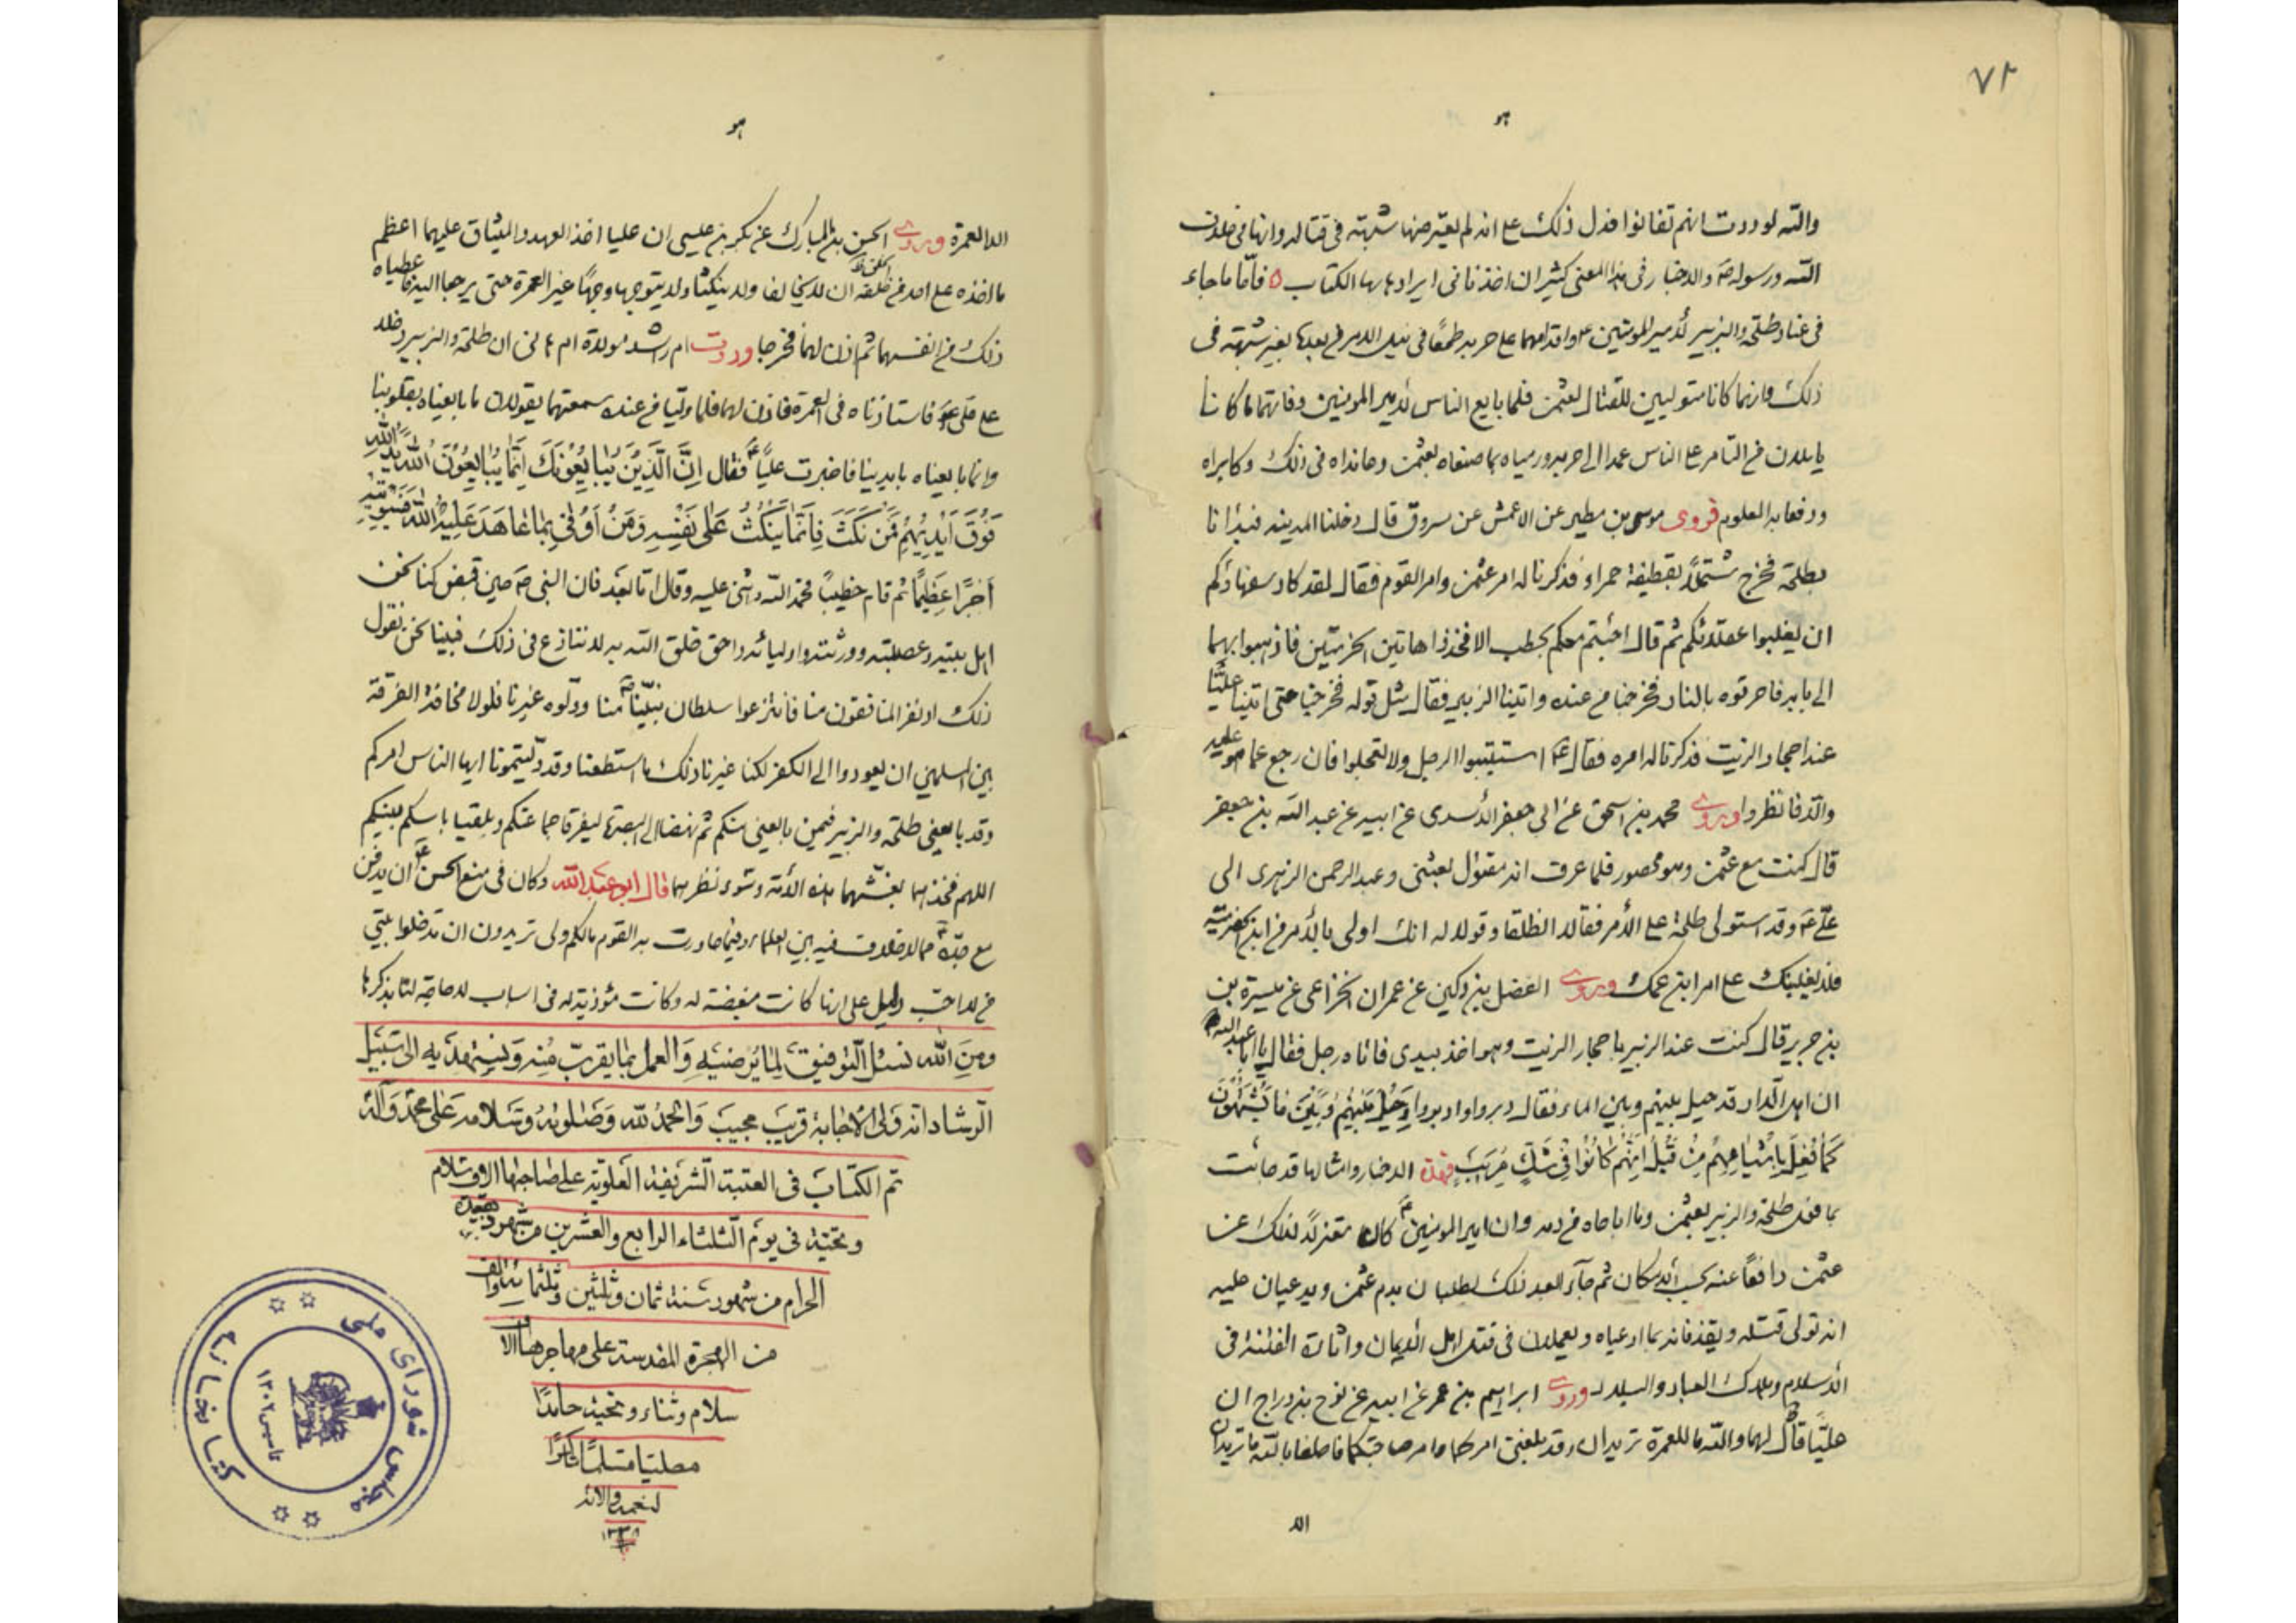 ٧٢
هو
والله لوددت انهم تفانوا فدل ذلك على انه لم يعترضها شبهة في قتاله وانها في خلاف
الله ورسوله ص والاخبار في هذا المعنى كثير ان اخذنا في ايرادها بها الكتاب ه فأما ما جاء
في عناد طلحة والزبير لأمير المؤمنين ع واقدامهما على حربه طمعًا في نيل الامر من بعدها بغير شبهة في
ذلك فانهما كانا متوليين للقتال لعثمن فلما بايع الناس لأمير المومنين وفاتهما ما كانا
ياملان من التامر على الناس عمدا الى حربه ورمياه بما صنعاه بعثمن وعانداه في ذلك وكابراه
ودفعا به المعلوم فروى موسى بن مطير عن الاعمش عن مسروق قال دخلنا المدينه فبدأنا
بطلحة فخرج مشتملًا بقطيفة حمراء فذكرنا له امر عثمن وامر القوم فقال لقد كاد سفهاؤكم
ان يغلبوا عقلائكم ثم قال اجئتم معكم بحطب الا فخذوا هاتين الحزمتين فاذهبوا بهما
الى بابه فاحرقوه بالنار فخرجنا من عنده واتينا الزبير فقال مثل قوله فخرجنا حتى اتينا عليًا
عند احجار الزيت فذكرنا له امره فقال ع استتيبوا الرجل ولا تعجلوا فان رجع عما هو عليه
والا فانظروا وروى محمد بن اسحق عن ابي جعفر الأسدى عن ابيه عن عبد الله بن جعفر
قال كنت مع عثمن وهو محصور فلما عرف انه مقتول بعثنى وعبد الرحمن الزهرى الى
علي ع وقد استولى طلحة على الأمر فقال انطلقا وقولا له انك اولى بالأمر من ابن الحضرمية
فلا يغلبنك على امر ابن عمك وروى الفضل بن دكين عن عمران الخزاعى عن ميسرة بن
بن جرير قال كنت عند الزبير باحجار الزيت وهو اخذ بيدى فاتاه رجل فقال يا ابا عبد الله
ان اهل الدار قد حيل بينهم وبين الماء فقال دبروا وادبروا وَحِيلَ بَيْنَهُمْ وَبَيْنَ مَا يَشْتَهُونَ
كَمَا فُعِلَ بِأَشْيَاعِهِمْ مِنْ قَبْلُ اِنَّهُمْ كَانُوا فِي شَكٍّ مُرِيبٍ فهذه الاخبار وامثالها قد جائت
بما فعل طلحة والزبير بعثمن وما اباحاه من دمه وان امير المومنين ع كان معتزلًا لذلك عن
عثمن دافعًا عنه بحسب الامكان ثم جآءا بعد ذلك يطلبان بدم عثمن ويدعيان عليه
انه تولى قتله ويقذفانه بما ادعياه ويعملان في قتل اهل الايمان واثارة الفتنة في
الأسلام وهلاك العباد والبلاد وروى ابراهيم بن عمر عن ابيه عن نوح بن دراج ان
عليًا ع قال لهما والله ما للعمرة تريدان وقد بلغنى امركما وامر صاحبتكما فاحلفا بالله ما تريدان
الا
هو
الا العمرة وروى الحسن بن المبارك عن بكر بن عيسى ان عليا اخذ العهد والميثاق عليهما اعظم
ما اخذه على احد من خلقه ان لا يخالفا ولا ينكثا ولا يتوجها وجهًا غير العمرة حتى يرجعا اليه فاعطياه
ذلك من انفسهما ثم اذن لهما فخرجا وروت ام راشد مولاة ام هانى ان طلحة والزبير دخلا
على علي ع فاستاذناه في العمرة فاذن لهما فلما وليا من عنده سمعتهما يقولان ما بايعناه بقلوبنا
وانما بايعناه بايدينا فاخبرت عليًا ع فقال اِنَّ الَّذِينَ يُبَايِعُونَكَ اِنَّمَا يُبَايِعُونَ اللهَ يَدُ اللهِ
فَوْقَ اَيْدِيهِمْ فَمَنْ نَكَثَ فَاِنَّمَا يَنْكُثُ عَلَى نَفْسِهِ وَمَنْ اَوْفَى بِمَا عَاهَدَ عَلَيْهُ اللهَ فَسَيُؤْتِيهِ
اَجْرًا عَظِيمًا ثم قام خطيبًا فحمد الله واثنى عليه وقال اما بعد فان النبى ص حين قبض كنا نحن
اهل بيته وعصبته وورثته واوليائه واحق خلق الله به لا نتنازع في ذلك فبينا نحن نقول
ذلك اذ نفر المنافقون منا فانتزعوا سلطان نبينا ص منا وولوه غيرنا فلولا مخافة الفرقة
بين المسلمين ان يعودوا الى الكفر لكنا غيرنا ذلك ما استطعنا وقد وليتمونا ايها الناس امركم
وقد بايعنى طلحة والزبير فيمن بايعنى منكم ثم نهضا الى البصرة ليفرقا جماعتكم ويلقيا باسكم بينكم
اللهم فخذهما بغشهما هذه الأمة وسوء نظرهما قال ابو عبد الله وكان في منع الحسن ع ان يدفن
مع جده ص مما لا خلاف فيه بين العلماء وفيما حاورت به القوم مالكم ولى تريدون ان تدخلوا بيتى
من لا احب دليل على انها كانت مبغضة له وكانت مؤذية له في اسباب لا حاجة لنا بذكرها
ومن الله نسئل التوفيق لما يرضيه والعمل بما يقرب منه ونستهديه الى سبيل
الرشاد انه ولى الأجابة قريب مجيب والحمد لله وصلوته وسلامه على محمد وآله
تم الكتاب في العتبة الشريفة العلوية على صاحبها الاف سلام
وتحية في يوم الثلثاء الرابع والعشرين من شهر ذيقعدة
الحرام من شهور سنة ثمان وثلثين وثلثمائة والف
من الهجرة المقدسة على مهاجرها الاف
سلام وثناء وتحية حامدًا
مصليا مسلمًا شاكرًا
لنعمه والائه
١٣٣٨
كتابخانه مجلس شوراى ملى
تاسيس ١٣٠٢